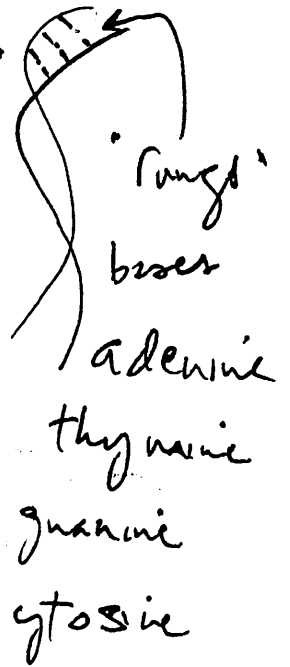 "rungs"
bases
adenine
thymine
guanine
ytosine